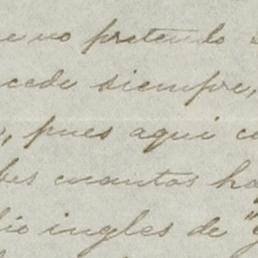 no pretendo
cede siempre,
, pues aqui
bes cuantos ha
io ingles de "